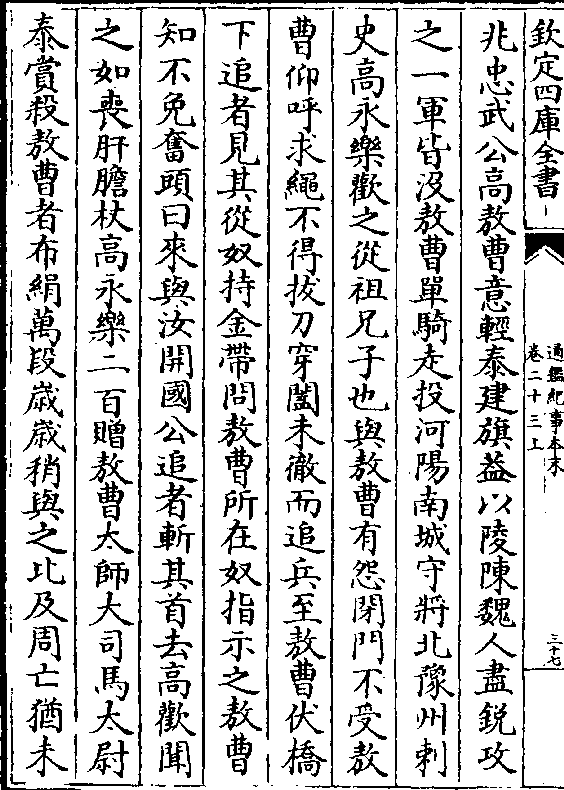 欽定四庫全書
通鑑紀事本末
卷二十三上
三十七
兆忠武公高敖曹意輕泰建旗葢以陵陳魏人盡銳攻
之一軍皆沒敖曹單騎走投河陽南城守將北豫州刺
史高永樂歡之從祖兄子也與敖曹有怨閉門不受敖
曹仰呼求繩不得拔刀穿闔未徹而追兵至敖曹伏橋
下追者見其從奴持金帶問敖曹所在奴指示之敖曹
知不免奮頭曰來與汝開國公追者斬其首去高歡聞
之如喪肝膽杖高永樂二百贈敖曹太師大司馬太尉
泰賞殺敖曹者布絹萬段歲歲稍與之比及周亡猶未